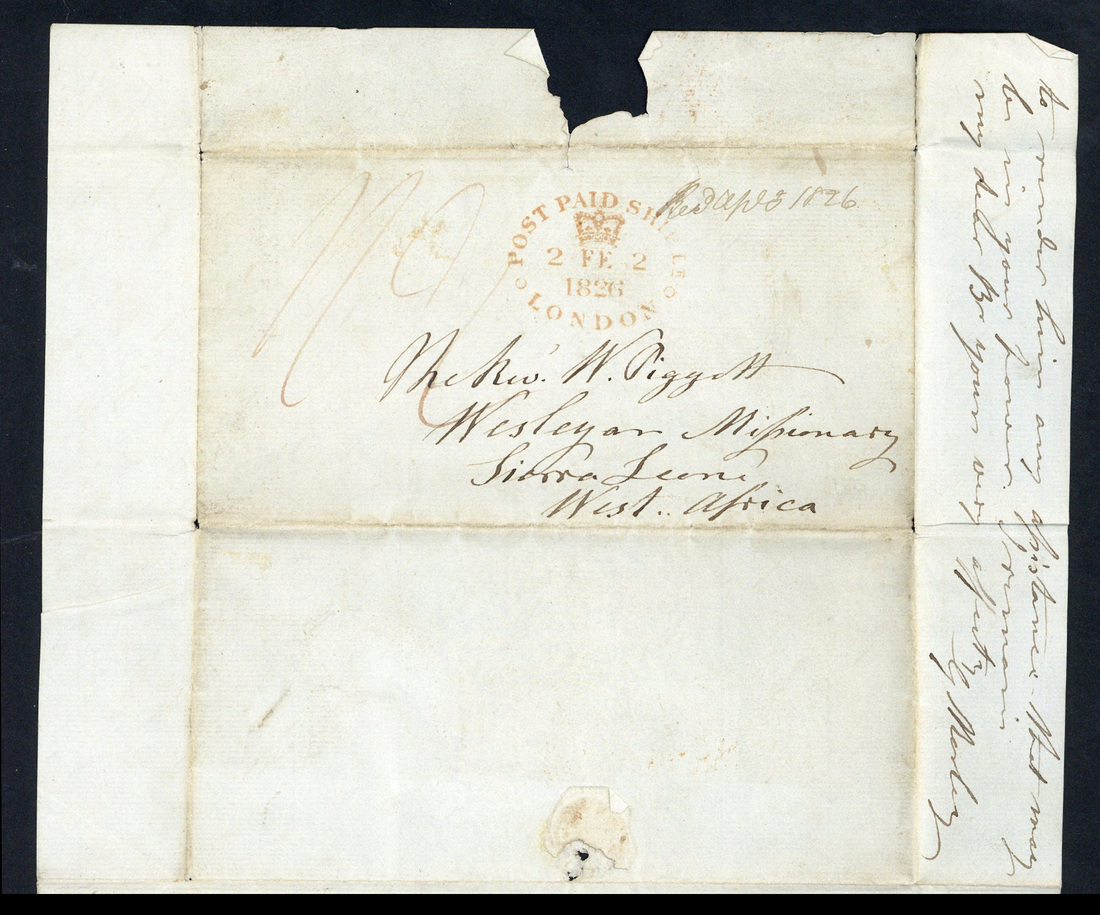 Recd Apl 3 1826
POST PAID SHIP LE
2 FE 2
1826
LONDON
The Revd. W. Piggott
Wesleyan Missionary
Sierra Leone
West. Africa
to render him any assistance that may
be in your power. I remain
my dear Br yours very affectly
G Morley